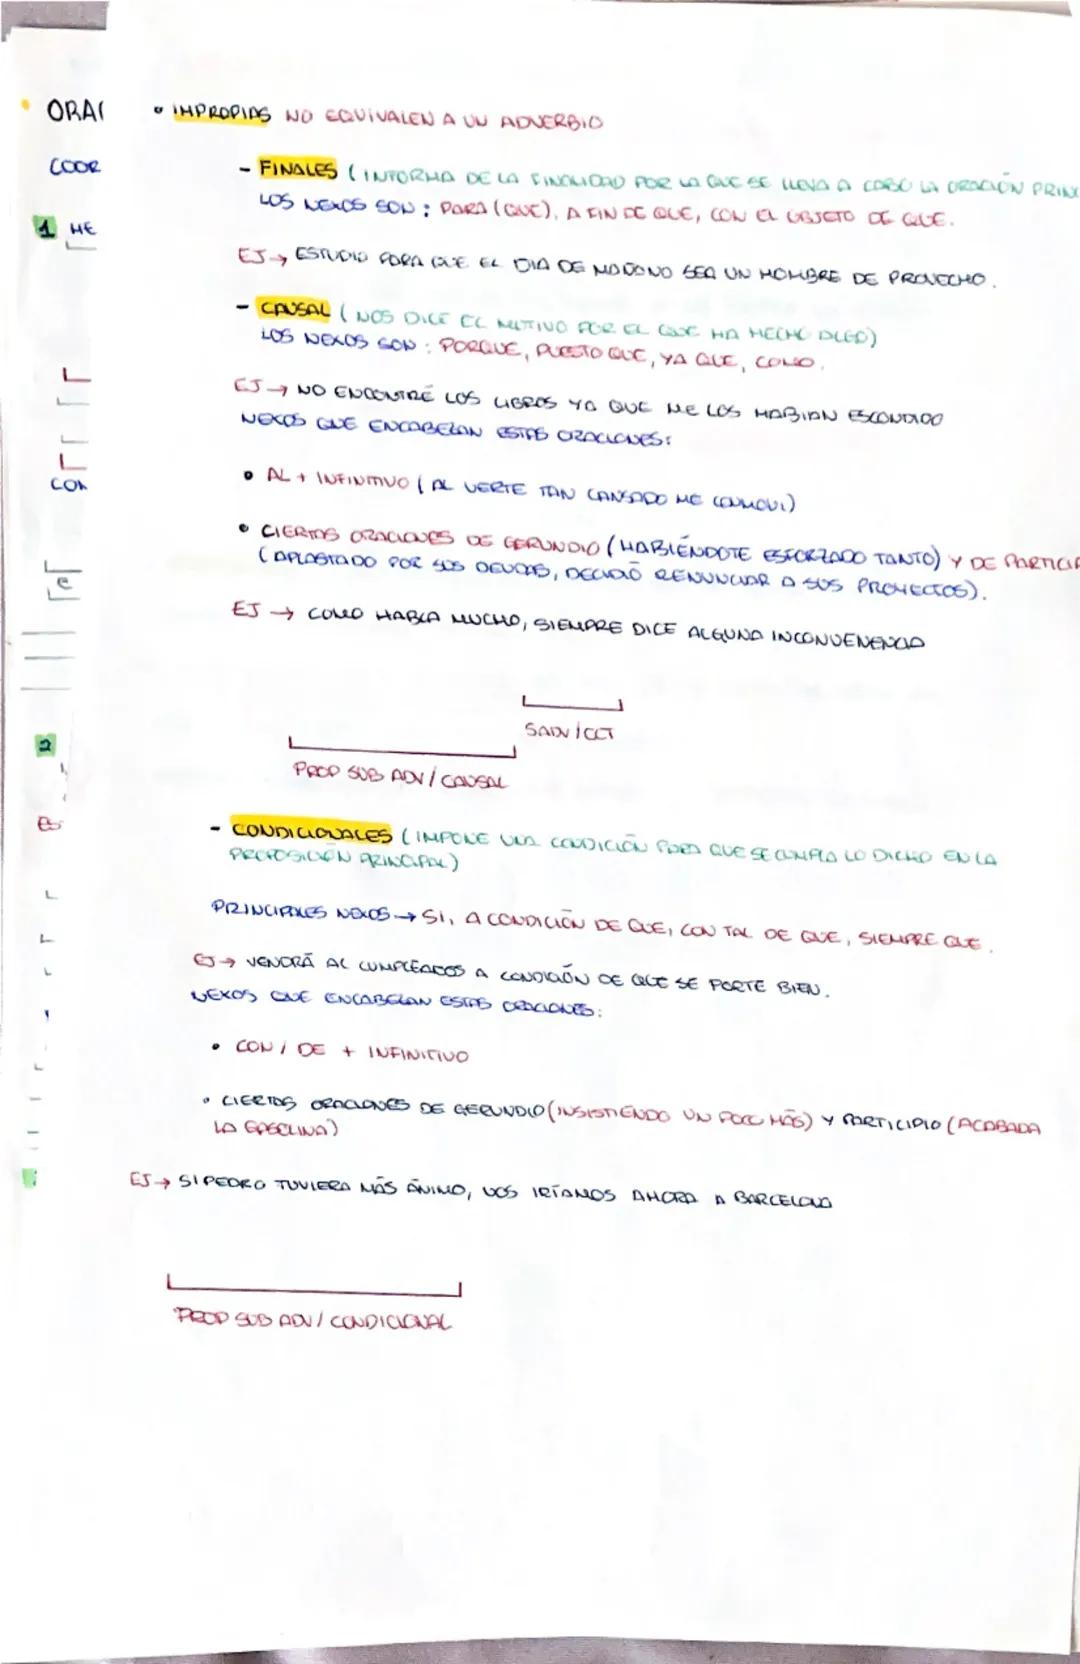 ORA
• IMPROPIAS NO EQUIVALEN A UN ADVERBIO
COOR
- FINALES (INFORMA DE LA FINALIDAD POR LA QUE SE LLEVA A CABO LA ORACIÓN PRINC
LOS NEXOS SON: PARA (QUE), A FIN DE QUE, CON EL OBJETO DE QUE.
1 ME
EJ → ESTUDIO PARA QUE EL DIA DE MAÑANA SEA UN HOMBRE DE PROVECHO.
- CAUSAL (NOS DICE EL MOTIVO POR EL QUE HA HECHO ALGO)
LOS NEXOS SON: PORQUE, PUESTO QUE, YA QUE, COMO.
EJ → NO ENCONTRÉ LOS LIBROS YA QUE ME LOS HABIAN ESCONDIDO
NEXOS QUE ENCABEZAN ESTAS ORACIONES:
CON
• AL + INFINITIVO (AL VERTE TAN CANSADO ME CONMOVI)
• CIERTAS ORACIONES DE GERUNDIO (HABIÉNDOTE ESFORZADO TANTO) Y DE PARTICIP
(APLASTADO POR SUS DEUDAS, DECIDIÓ RENUNCIAR A SUS PROYECTOS).
e
EJ → COMO HABLA MUCHO, SIEMPRE DICE ALGUNA INCONVENENCIA
SADV/CCT
2
PROP SUB ADV/CAUSAL
- CONDICIONALES (IMPONE UNA CONDICIÓN PARA QUE SE CUMPLA LO DICHO EN LA
PROPOSICIÓN PRINCIPAL)
PRINCIPALES NEXOS → SI, A CONDICIÓN DE QUE, CON TAL DE QUE, SIEMPRE QUE.
EJ → VENDRÁ AL CUMPLEAÑOS A CONDICIÓN DE QUE SE PORTE BIEN.
NEXOS QUE ENCABEZAN ESTAS ORACIONES:
• CON / DE + INFINITIVO
• CIERTAS ORACIONES DE GERUNDIO (INSISTIENDO UN POCO MÁS) Y PARTICIPIO (ACABADA
LA GASOLINA)
EJ → SI PEDRO TUVIERA MÁS ÁNIMO, NOS IRÍAMOS AHORA A BARCELONA
PROP SUB ADV/CONDICIONAL